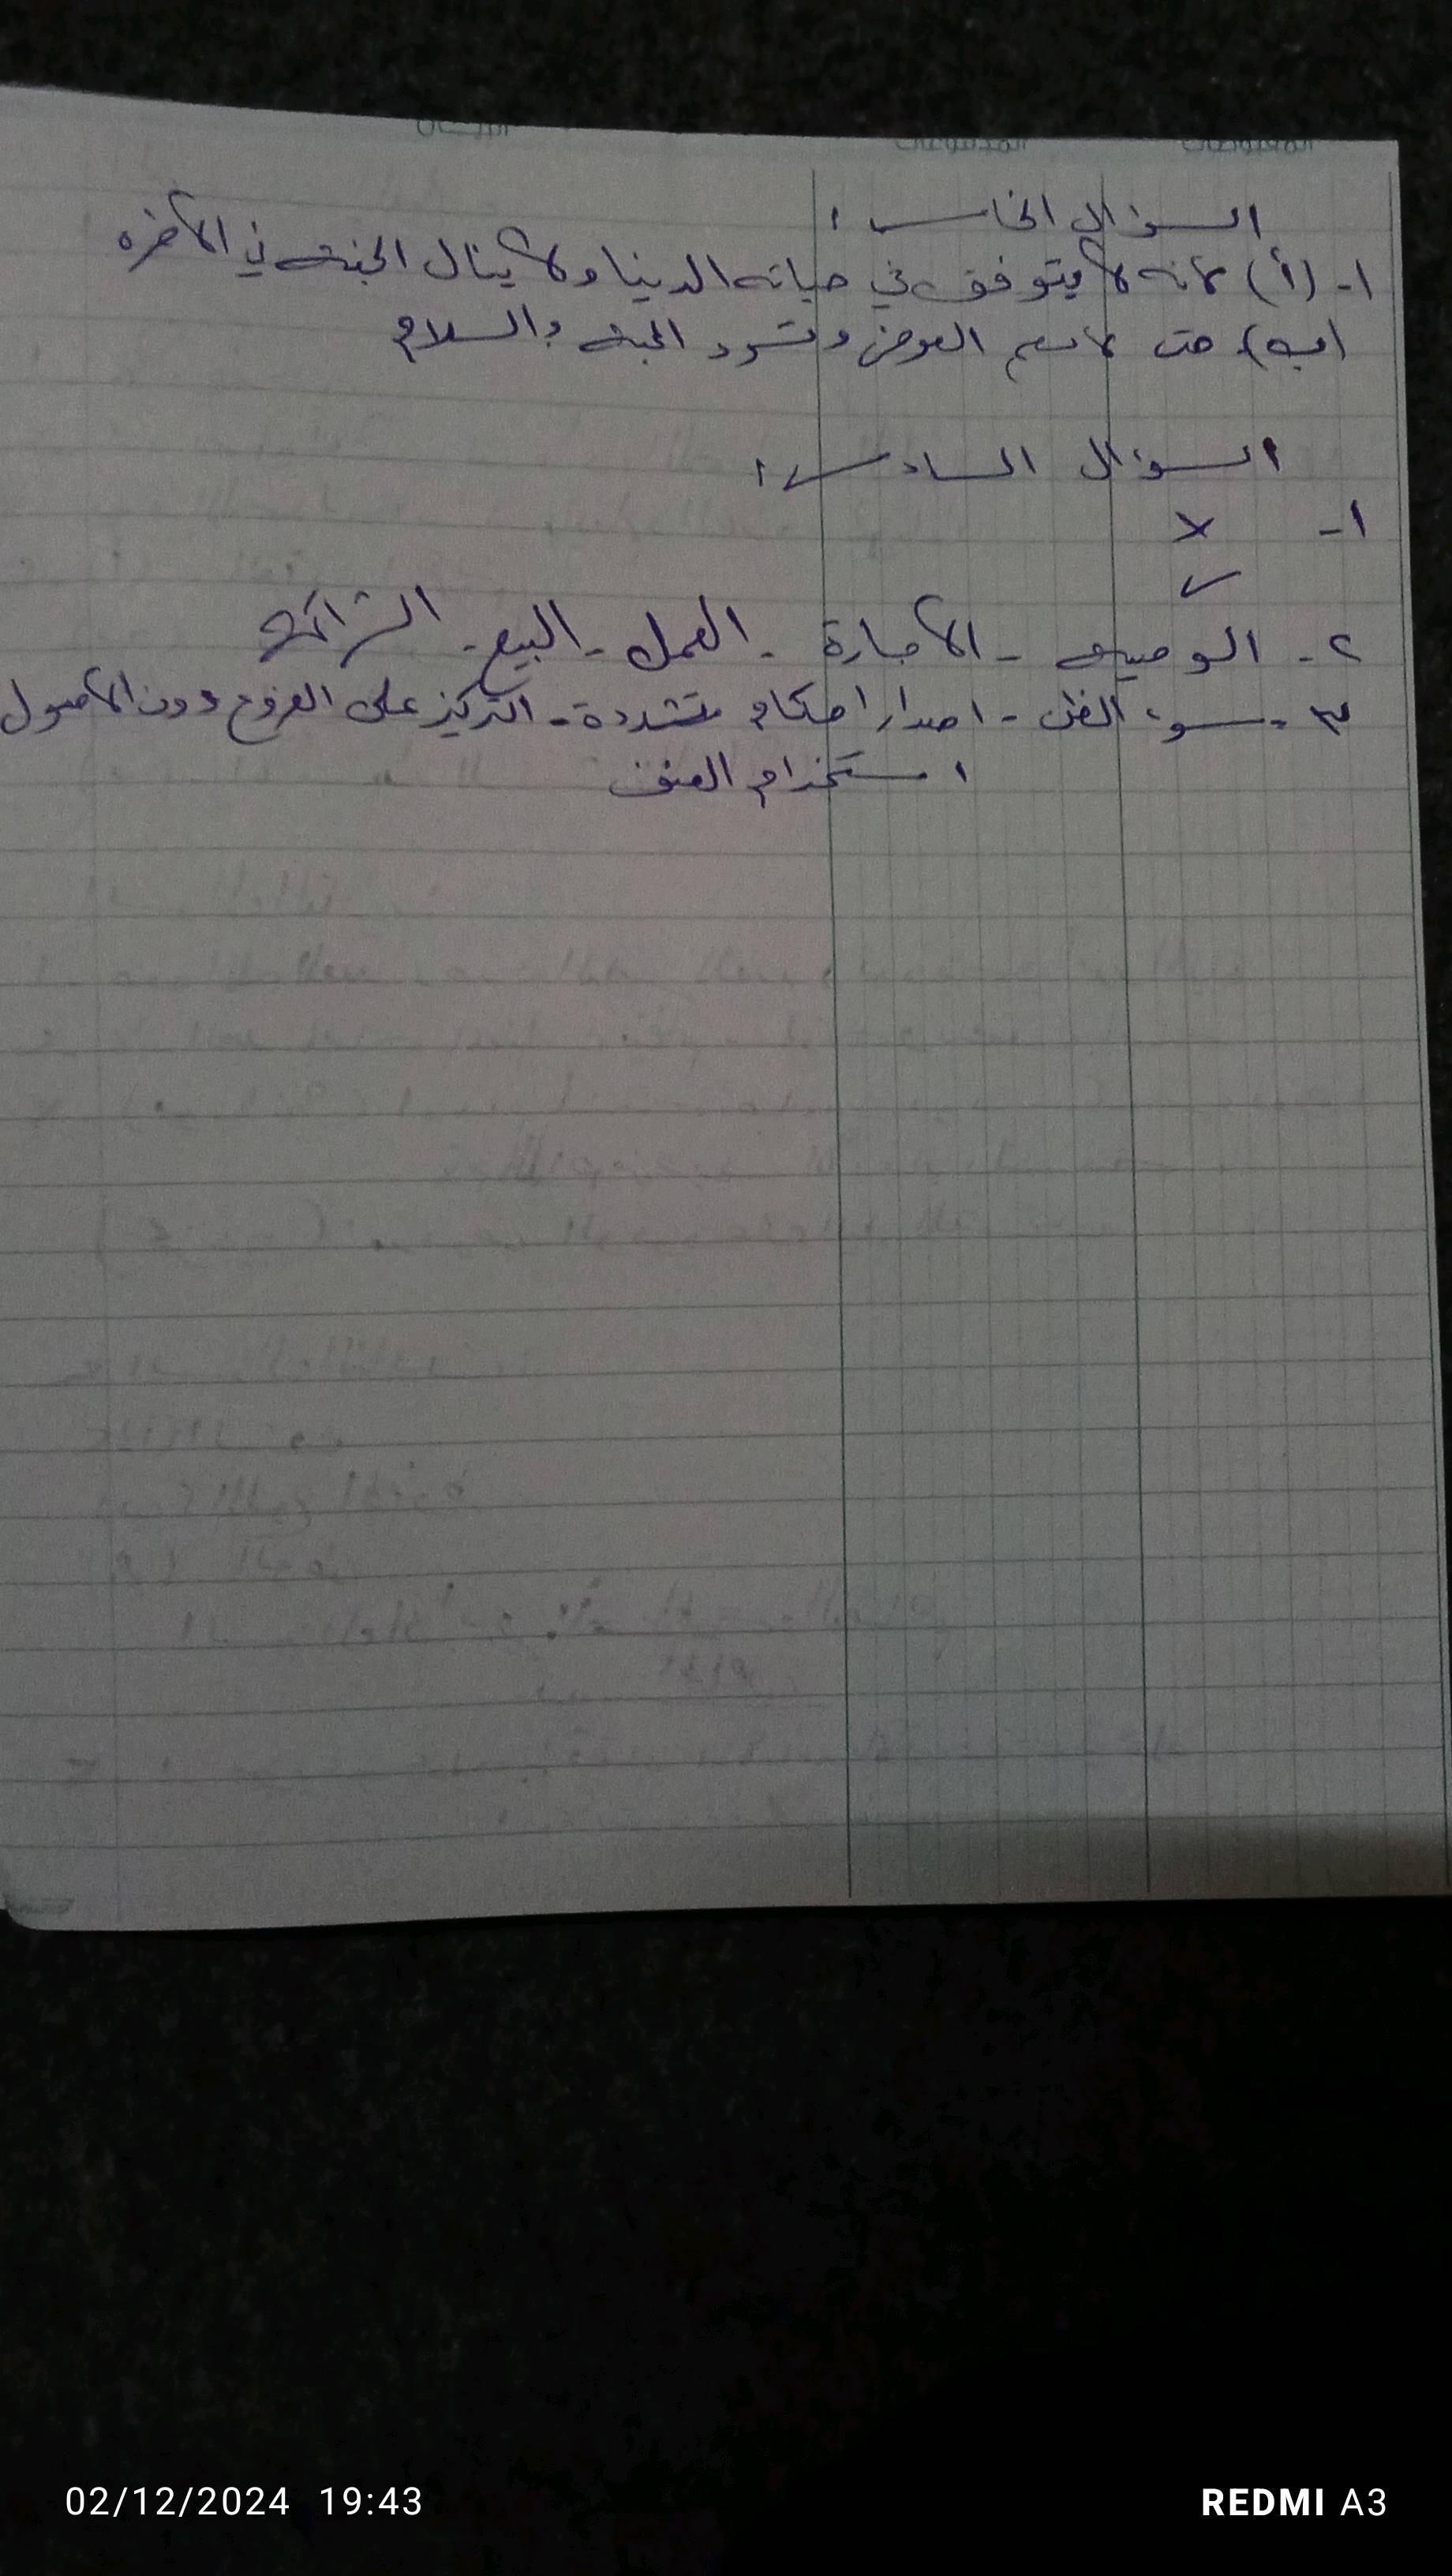 السؤال الخامس :
١- (أ) لانه لا يتوفق في حياته الدنيا ولا ينال الجنه في الاخره
(ب) حتى لا تعم الفوضى وتسود المحبه والسلام
السؤال السادس :
١- ×
✓
٢- الوصيه - الاجارة - العمل - البيع - الشراكه
٣- سوء الظن - اصدار احكام متشددة - التركيز على الفروع دون الاصول
استخدام العنف
02/12/2024 19:43
REDMI A3